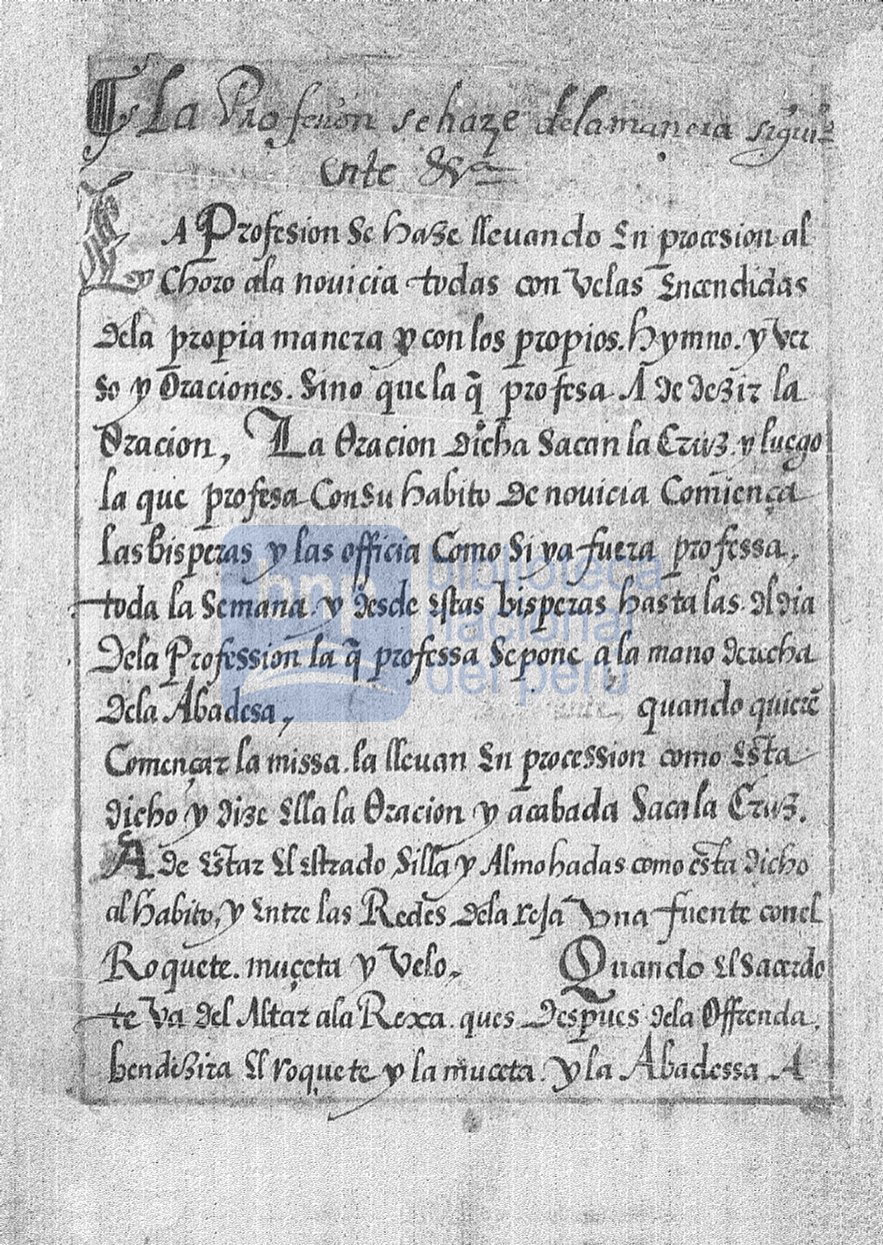 La Profesion se haze dela manera sigui-
ente &c.
LA Profesion Se haze lleuando En procesion al
Choro ala nouicia todas con Velas Encendidas
dela propia manera y con los propios. hymno. y Ver
so y Oraciones. Sino que la q̃ profesa A de dezir la
Oracion, La Oracion dicha Sacan la Cruz. y luego
la que profesa Con Su habito de nouicia Comiença
las bisperas y las officia Como Si ya fuera professa,
toda la Semana. y desde Estas bisperas hasta las. del dia
Dela Profession la q̃ professa Se pone a la mano derecha
Dela Abadesa, quando quierẽ
Començar la missa. la lleuan En procession como Esta
dicho y dize Ella la Oracion y acabada Saca la Cruz.
A de Estar El Estrado Silla y Almohadas como esta dicho
al habito, y Entre las Redes dela reja Vna fuente con el
Roquete. muçeta y Velo, Quando El Sacerdo
te Va del Altar ala Rexa. ques Despues dela Offrenda,
bendizira El roquete y la muceta. y la Abadessa A
bnp biblioteca
nacional
del perú